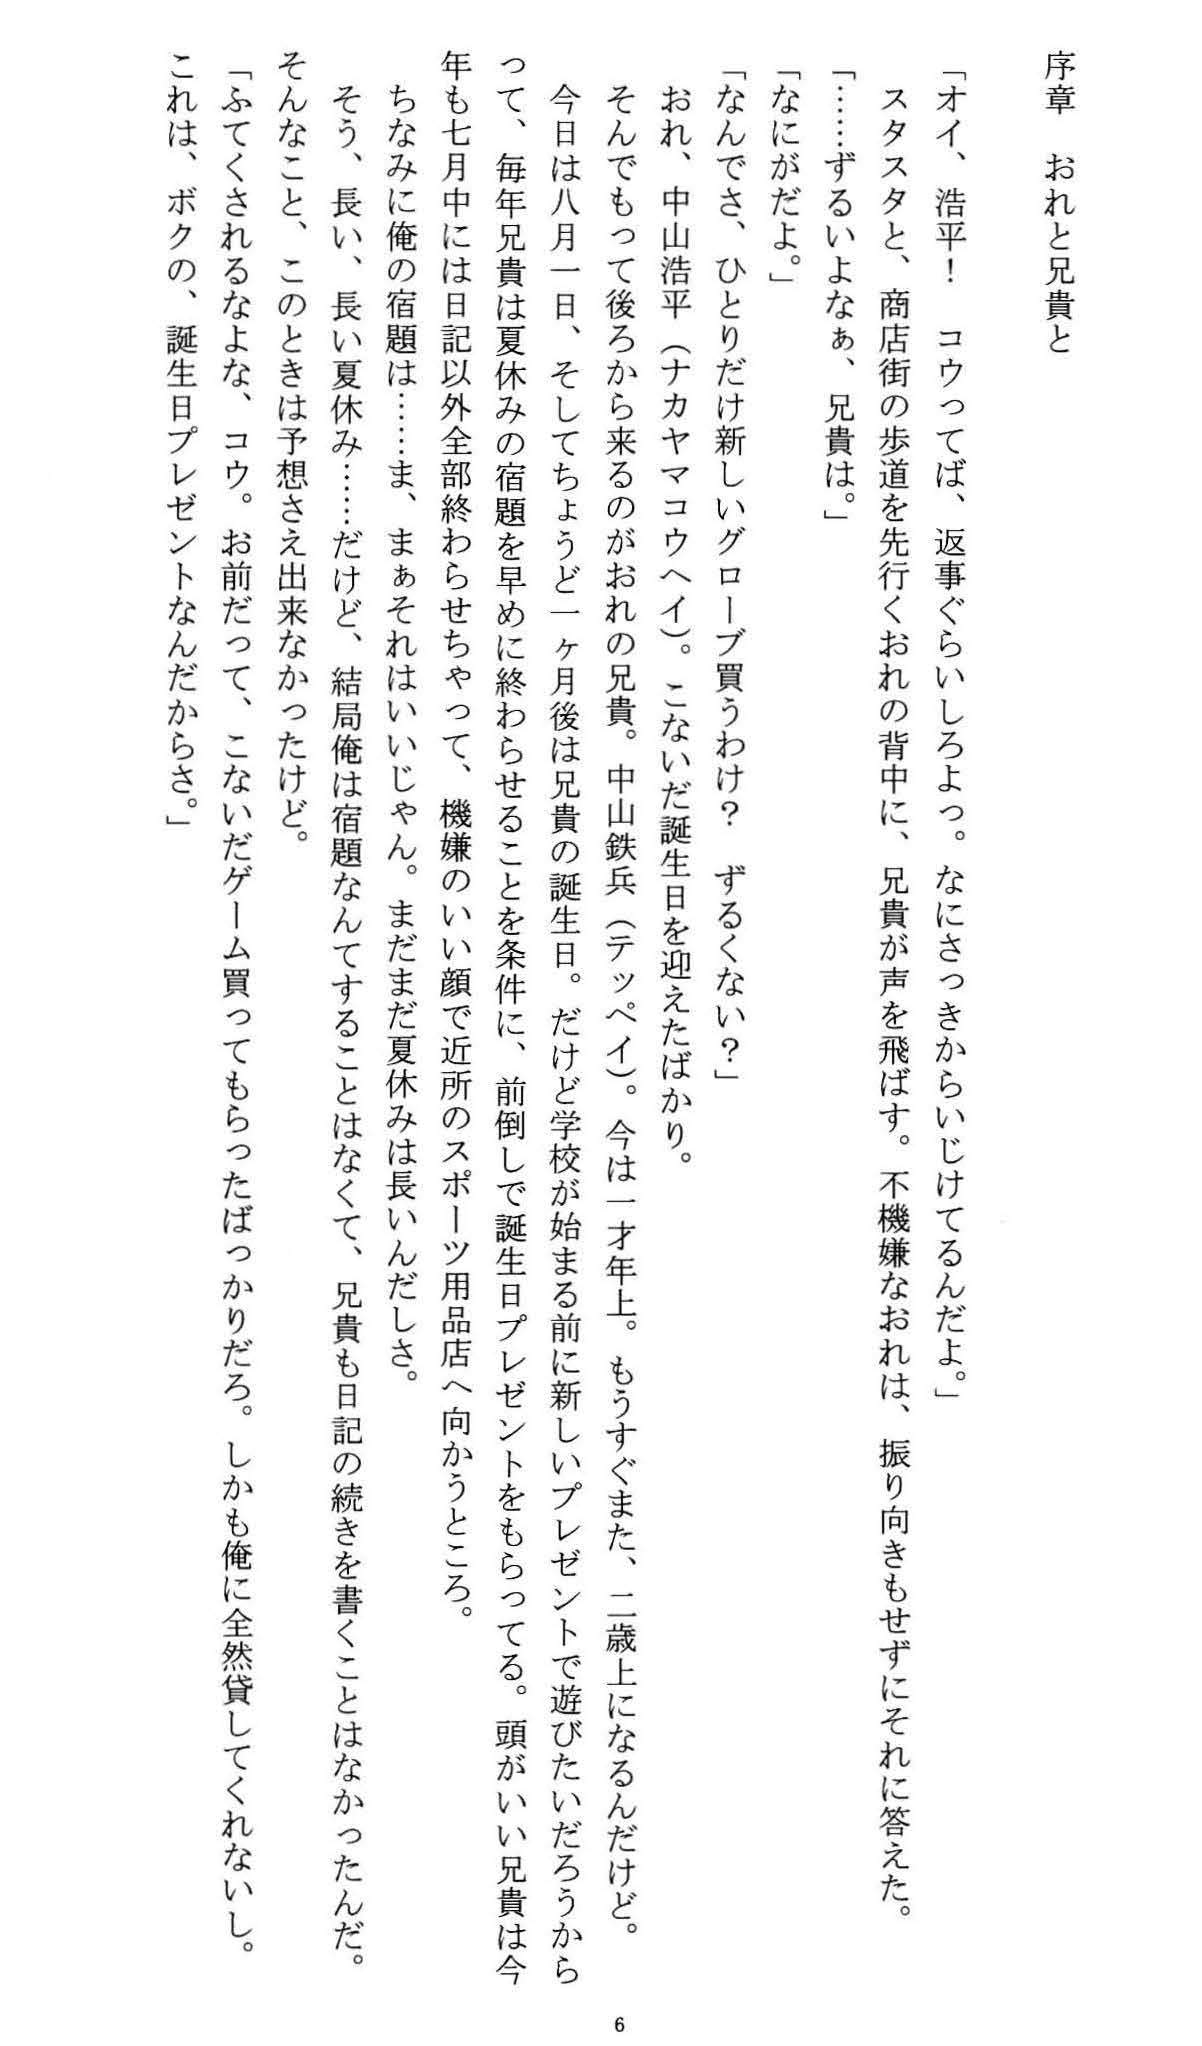 序章　おれと兄貴と
「オイ、浩平！　コウってば、返事ぐらいしろよっ。なにさっきからいじけてるんだよ。」
スタスタと、商店街の歩道を先行くおれの背中に、兄貴が声を飛ばす。不機嫌なおれは、振り向きもせずにそれに答えた。
「……ずるいよなぁ、兄貴は。」
「なにがだよ。」
「なんでさ、ひとりだけ新しいグローブ買うわけ？　ずるくない？」
おれ、中山浩平（ナカヤマコウヘイ）。こないだ誕生日を迎えたばかり。
そんでもって後ろから来るのがおれの兄貴。中山鉄兵（テッペイ）。今は一才年上。もうすぐまた、二歳上になるんだけど。
今日は八月一日、そしてちょうど一ヶ月後は兄貴の誕生日。だけど学校が始まる前に新しいプレゼントで遊びたいだろうから
って、毎年兄貴は夏休みの宿題を早めに終わらせることを条件に、前倒しで誕生日プレゼントをもらってる。頭がいい兄貴は今
年も七月中には日記以外全部終わらせちゃって、機嫌のいい顔で近所のスポーツ用品店へ向かうところ。
ちなみに俺の宿題は……ま、まぁそれはいいじゃん。まだまだ夏休みは長いんだしさ。
そう、長い、長い夏休み……だけど、結局俺は宿題なんてすることはなくて、兄貴も日記の続きを書くことはなかったんだ。
そんなこと、このときは予想さえ出来なかったけど。
「ふてくされるなよな、コウ。お前だって、こないだゲーム買ってもらったばっかりだろ。しかも俺に全然貸してくれないし。
これは、ボクの、誕生日プレゼントなんだからさ。」
6